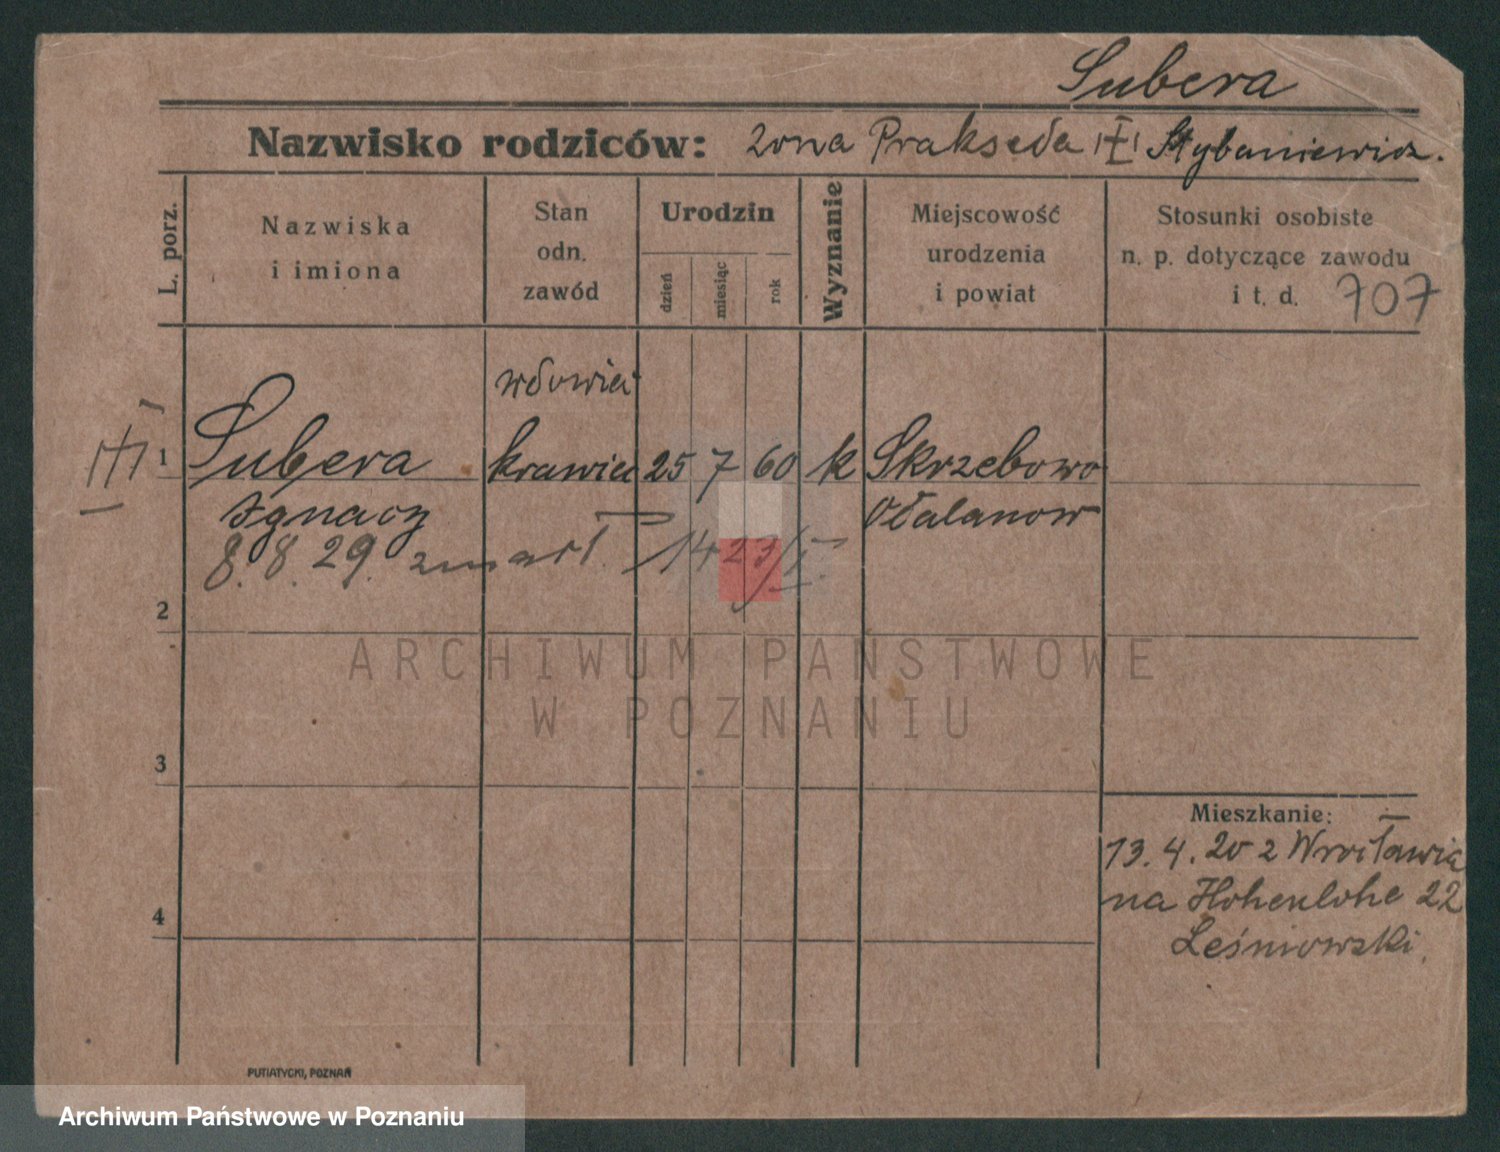 Subera
Nazwisko rodziców: żona Prakseda Stybaniewicz.
L. porz.
Nazwiska
i imiona
Stan
odn.
zawód
Urodzin
dzień
miesiąc
rok
Wyznanie
Miejscowość
urodzenia
i powiat
Stosunki osobiste
n. p. dotyczące zawodu
i t. d. 707
wdowiec
1 Subera krawiec 25 7 60 k Skrzebowo
Ignacy Odalanow
8. 8. 29. zmarł. 1423/I.
2
ARCHIWUM PAŃSTWOWE
W POZNANIU
3
Mieszkanie:
13. 4. 20 z Wrocławia
na Hohenlohe 22
Leśniowski.
4
PUTIATYCKI, POZNAŃ
Archiwum Państwowe w Poznaniu